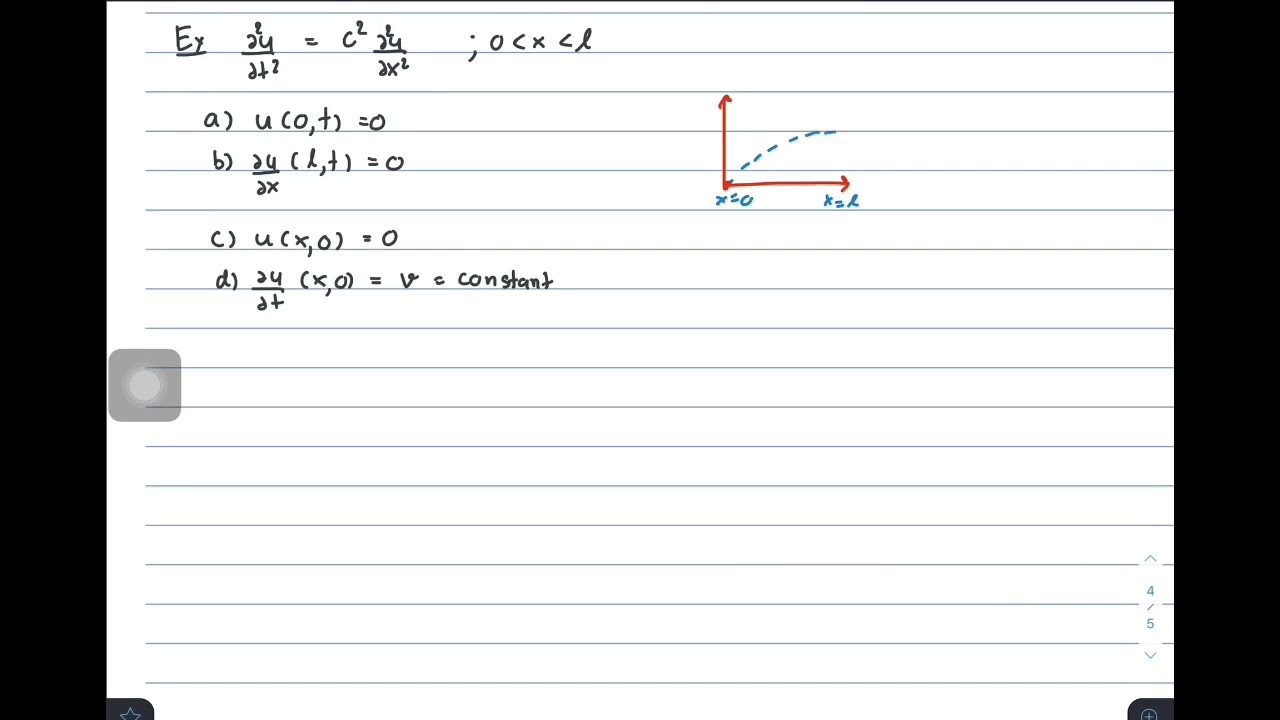 Ex ∂²u/∂t² = c² ∂²u/∂x² ; 0 < x < l
a) u(0,t) = 0
b) ∂u/∂x (l,t) = 0
x=0 x=l
c) u(x,0) = 0
d) ∂u/∂t (x,0) = v = constant
4
/
5